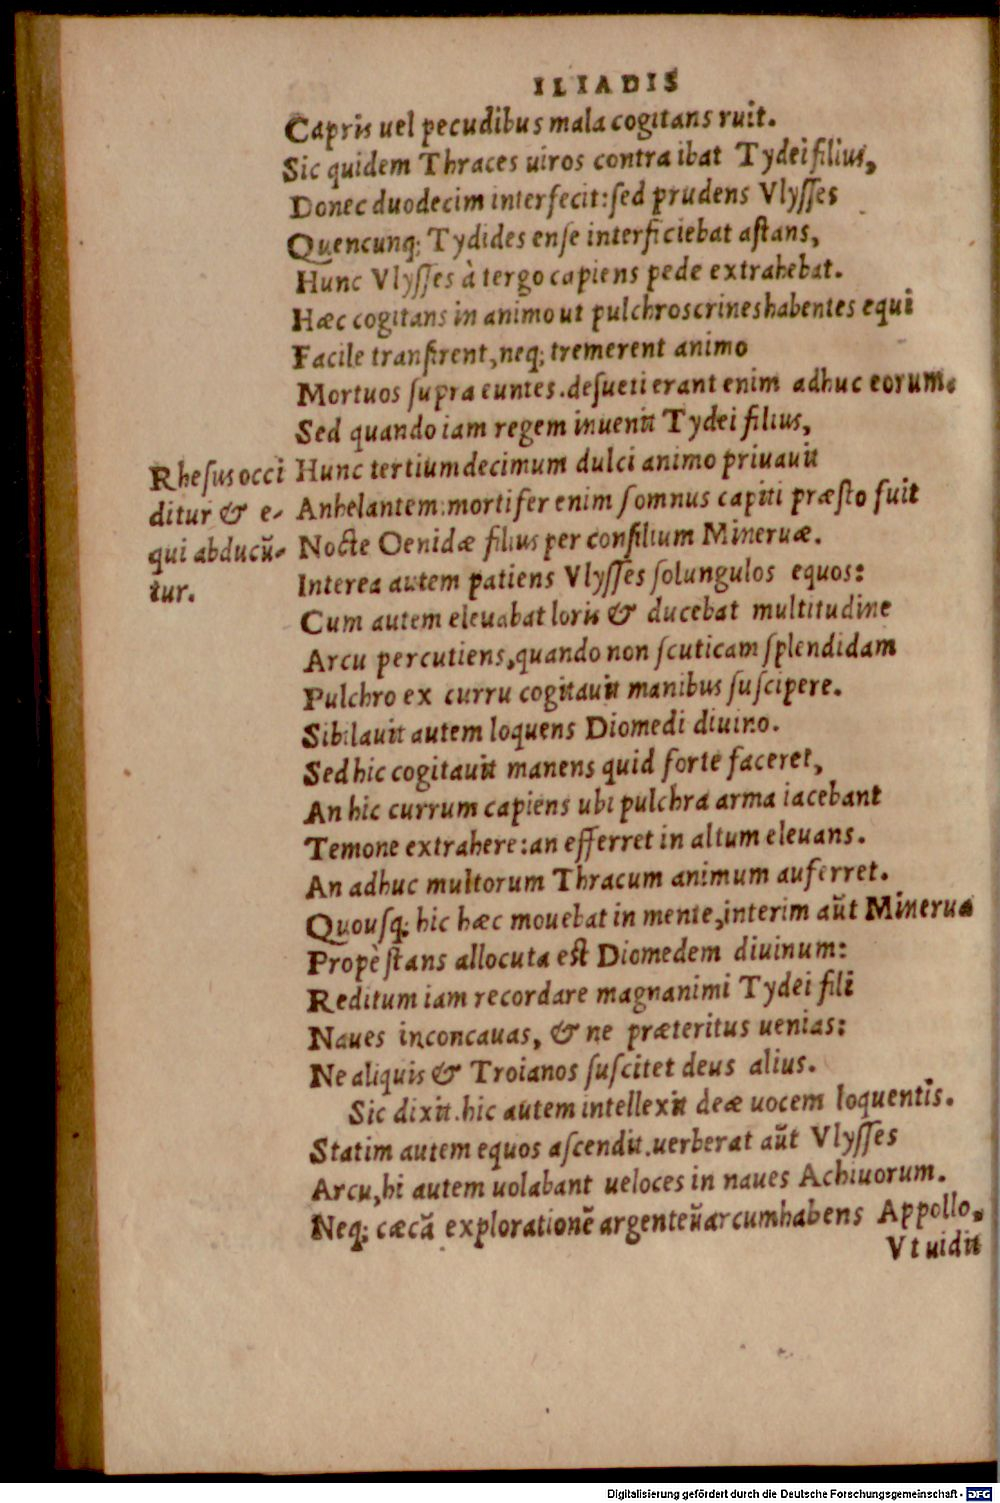 ILIADIS
Capris uel pecudibus mala cogitans ruit.
Sic quidem Thraces uiros contra ibat Tydei filius,
Donec duodecim interfecit: sed prudens Vlysses
Quencunq; Tydides ense interficiebat astans,
Hunc Vlysses à tergo capiens pede extrahebat.
Hæc cogitans in animo ut pulchros crines habentes equi
Facile transirent, neq; tremerent animo
Mortuos supra euntes. desueti erant enim adhuc eorum.
Sed quando iam regem inuenit Tydei filius,
Hunc tertiumdecimum dulci animo priuauit
Anhelantem: mortifer enim somnus capiti præsto fuit
Nocte Oenidæ filius per consilium Mineruæ.
Interea autem patiens Vlysses solungulos equos:
Cum autem eleuabat loris & ducebat multitudine
Arcu percutiens, quando non scuticam splendidam
Pulchro ex curru cogitauit manibus suscipere.
Sibilauit autem loquens Diomedi diuino.
Sed hic cogitauit manens quid forte faceret,
An hic currum capiens ubi pulchra arma iacebant
Temone extrahere: an efferret in altum eleuans.
An adhuc multorum Thracum animum auferret.
Quousq; hic hæc mouebat in mente, interim aũt Minerua
Propè stans allocuta est Diomedem diuinum:
Reditum iam recordare magnanimi Tydei fili
Naues inconcauas, & ne præteritus uenias:
Ne aliquis & Troianos suscitet deus alius.
Sic dixit. hic autem intellexit deæ uocem loquentis.
Statim autem equos ascendit. uerberat aũt Vlysses
Arcu, hi autem uolabant ueloces in naues Achiuorum.
Neq; cæcã explorationẽ argenteũ arcum habens Appollo,
Vt uidit
Rhesus occi
ditur & e-
qui abducũ-
tur.
Digitalisierung gefördert durch die Deutsche Forschungsgemeinschaft - DFG